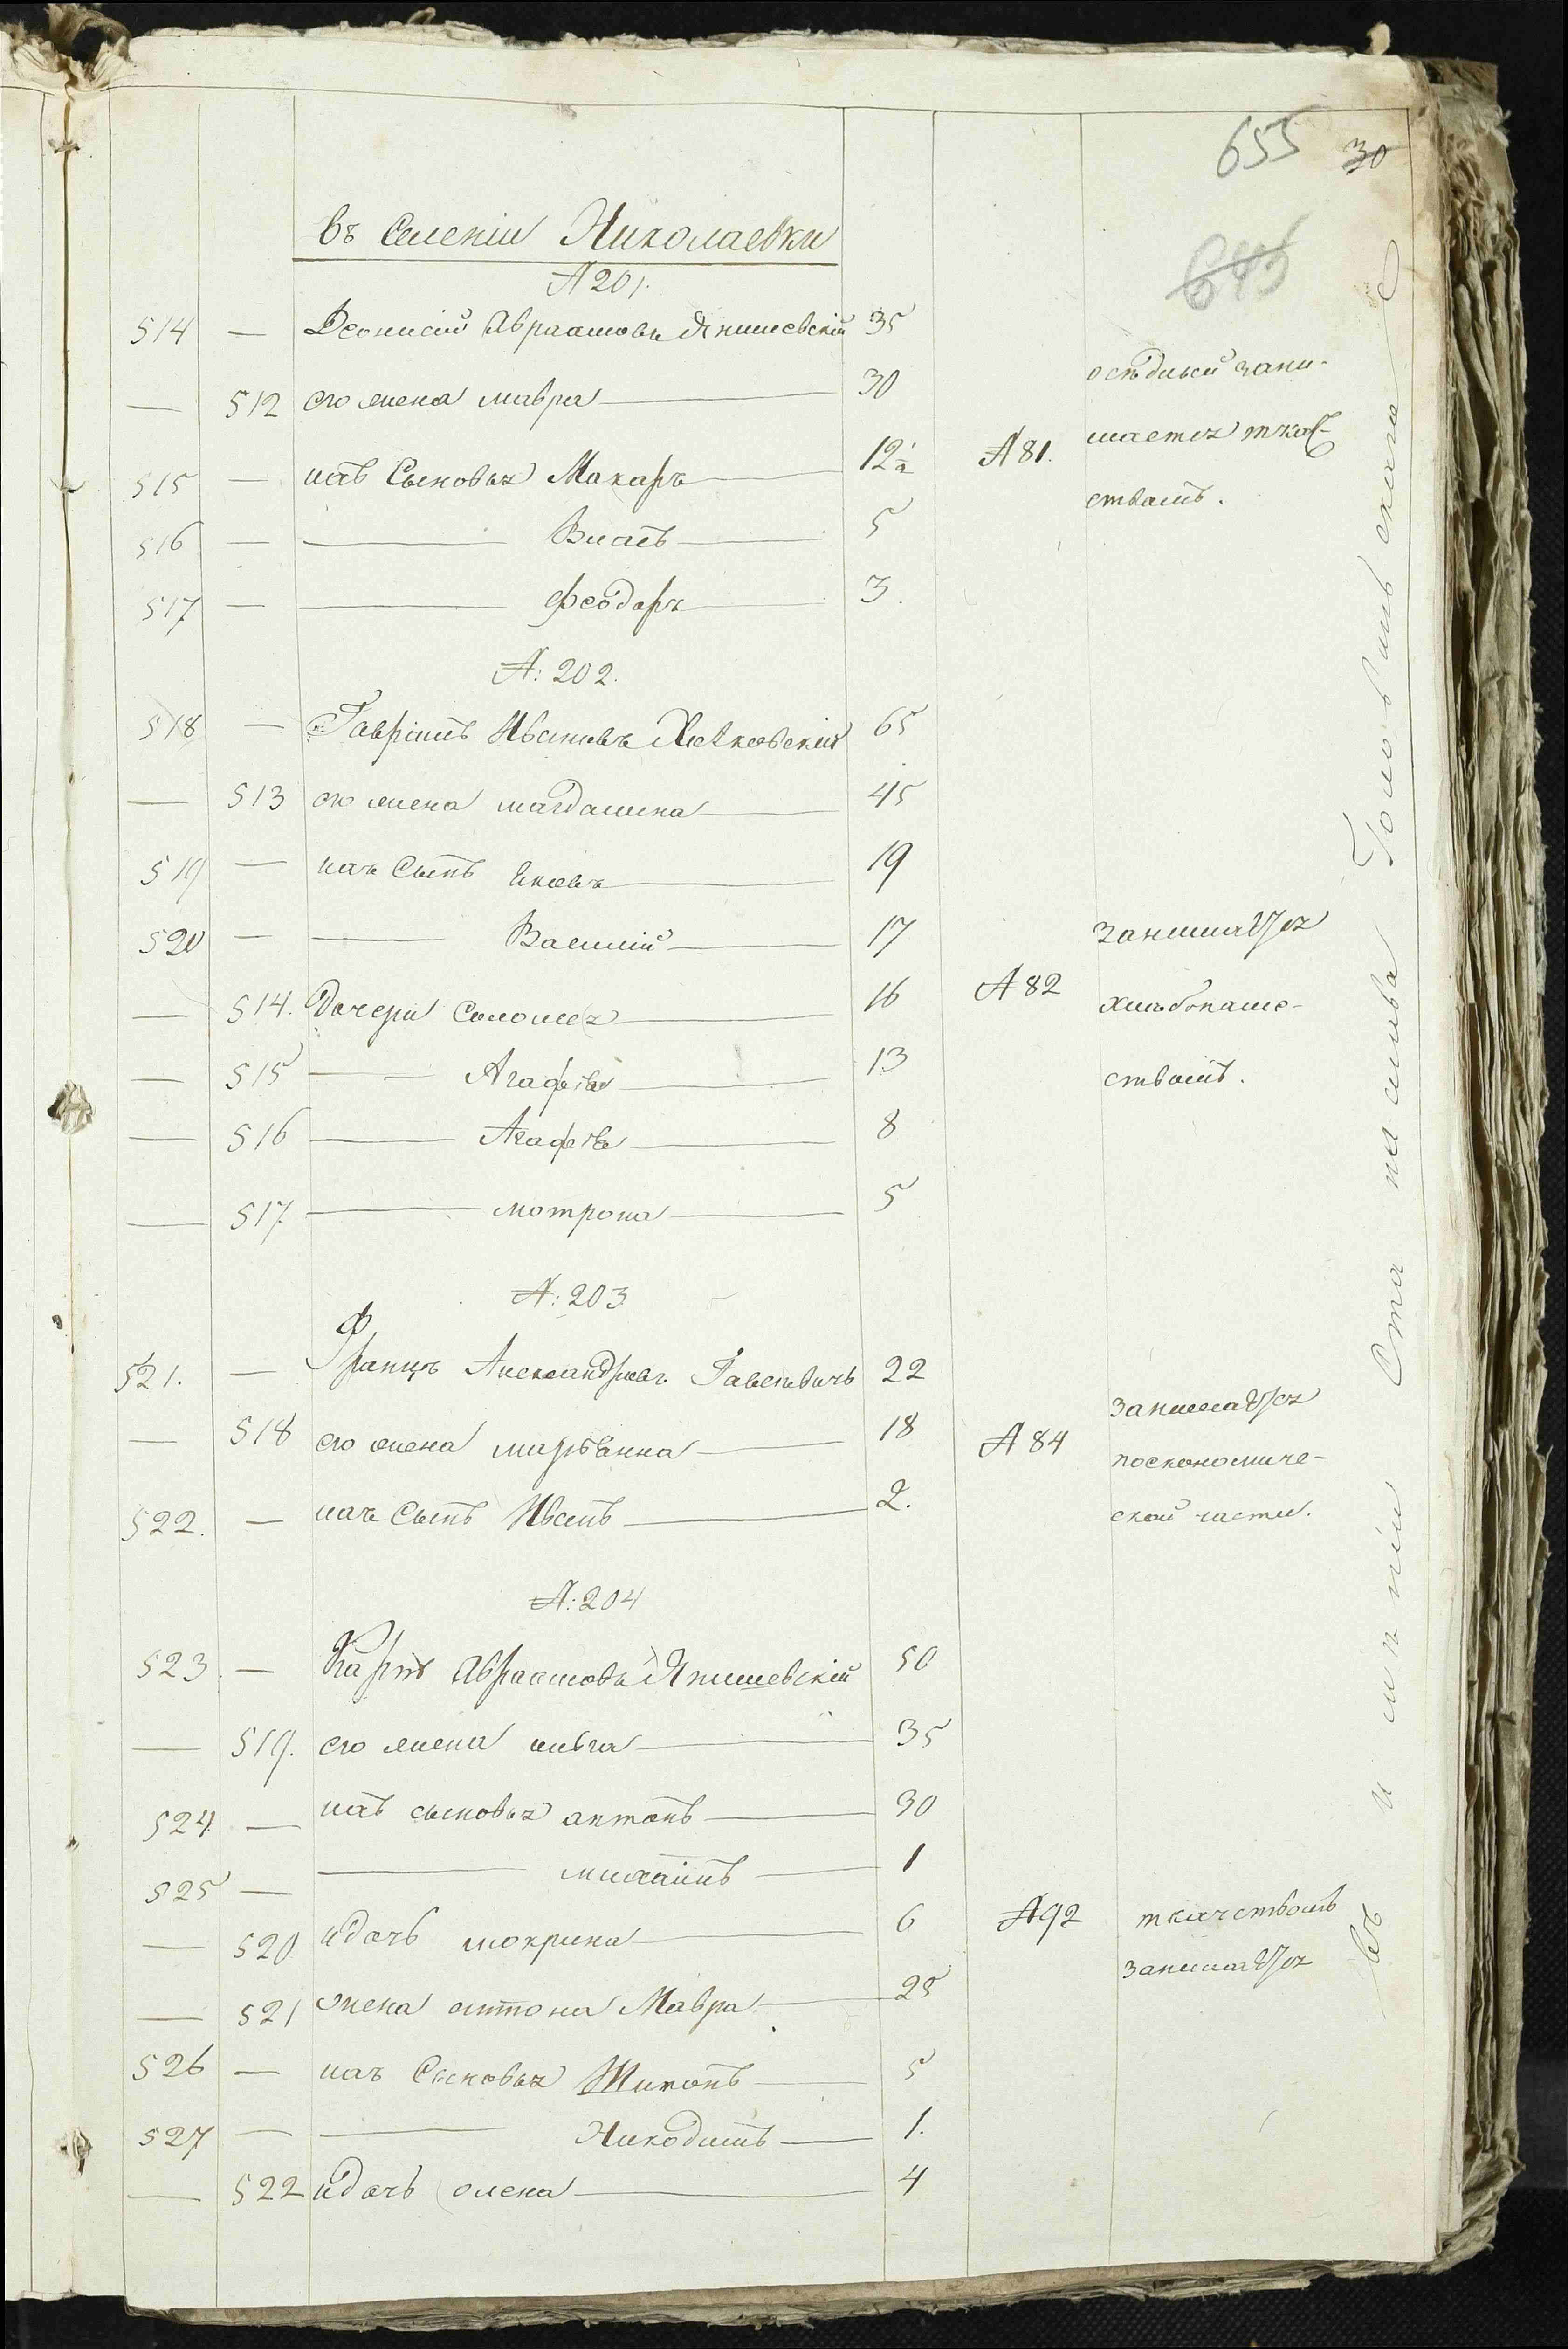 655 30
645
въ Селенiи Николаевки
№ 201.
514 — Деонисiй Авраамовъ Янишевскiй 35
— 512 его жена мавра — 30
осѣдлый зани-
515 — ихъ Сыновья Макаръ — 12½ № 81.
мается ткаче-
ствомъ.
516 — — Власъ — 5
517 — — Феодоръ — 3.
№: 202.
518 — Гаврiилъ Ивановъ 65
— 513 его жена магдалина — 45
519 — ихъ Сынъ Яковъ — 19
520 — — Василiй — 17
занимается
— 514. Дочери Соломея — 16 № 82
хлѣбопаше-
— 515 — Агафiя — 13
ствомъ.
— 516 — Агафiя — 8
— 517 — мотрона — 5
№: 203
521. — Францъ Александровъ 22
занимается
— 518 его жена марiанна — 18 № 84
поекономиче-
522. — ихъ Сынъ Иванъ — 2.
ской части.
№: 204
523. — Карпъ Авраамовъ Янишевскiй 50
— 519. его жена — 35
524 — ихъ сыновья антонъ — 30
525 — — михаилъ — 1
— 520 идочь мокрина — 6 № 92
ткачествомъ
занимается
— 521 жена антона Мавра — 25
526 — ихъ Сыновья — 5
527 — — Никодимъ — 1.
— 522 идочь олена — 4
въ имѣнiи Ста ни слава Головинскаго